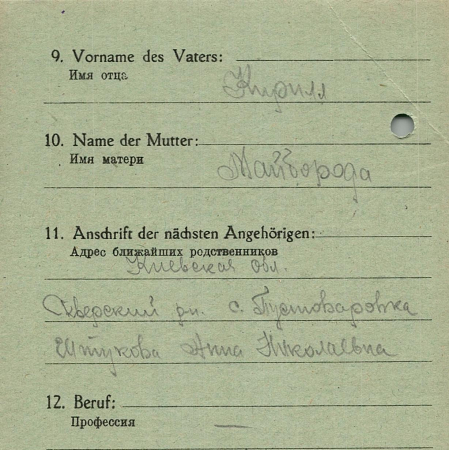 9. Vorname des Vaters:
Имя отца
Кирилл
10. Name der Mutter:
Имя матери
Майборода
11. Anschrift der nächsten Angehörigen:
Адрес ближайших родственников
Киевская обл.
Сквирский рн. с. Пустоваровка
Штукова Анна Николаевна
12. Beruf:
Профессия
—